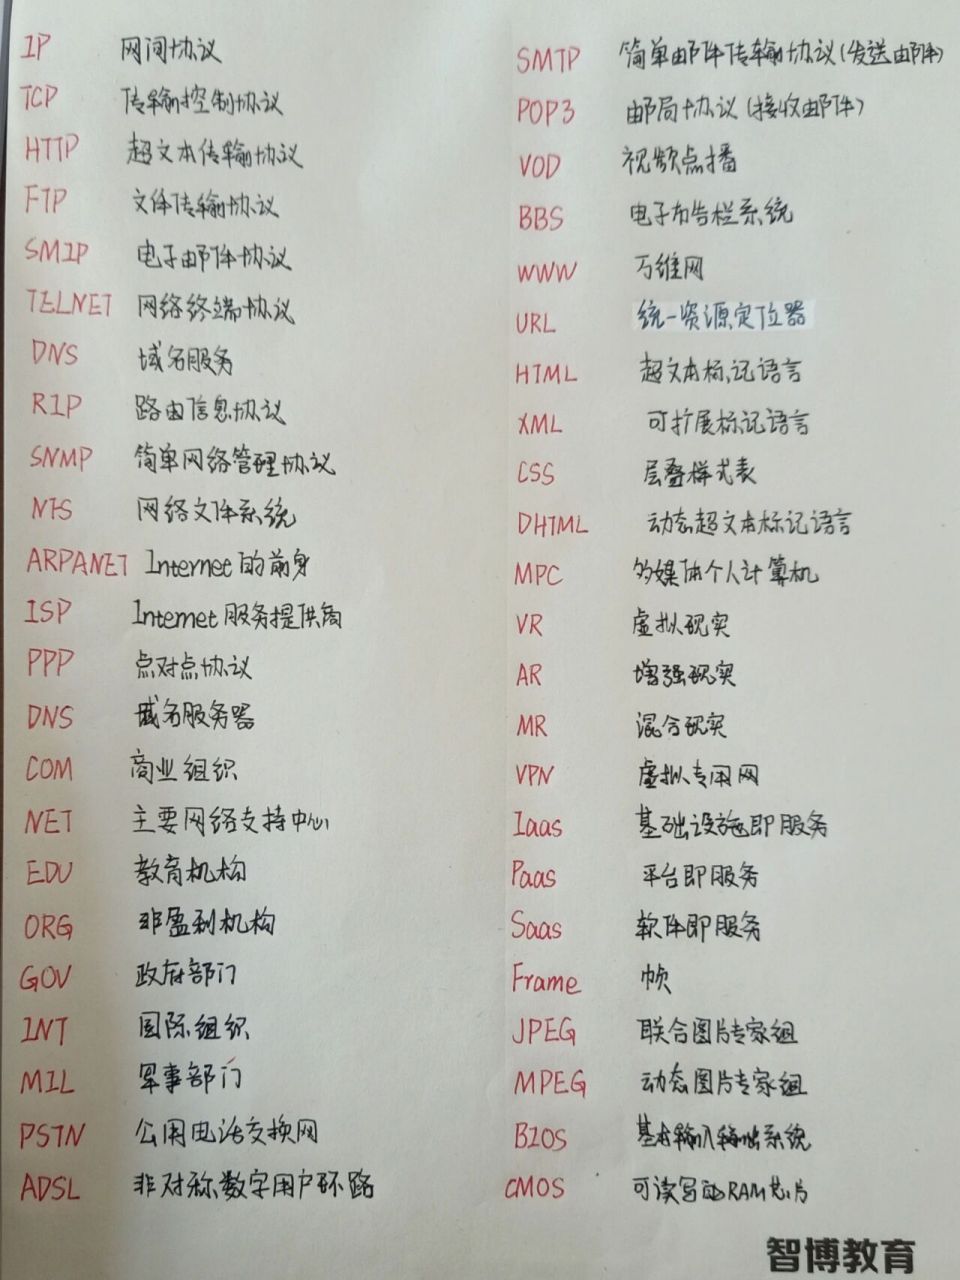 IP 网间协议
TCP 传输控制协议
HTTP 超文本传输协议
FTP 文件传输协议
SMIP 电子邮件协议
TELNET 网络终端协议
DNS 域名服务
RIP 路由信息协议
SNMP 简单网络管理协议
NFS 网络文件系统
ARPANET Internet的前身
ISP Internet服务提供商
PPP 点对点协议
DNS 域名服务器
COM 商业组织
NET 主要网络支持中心
EDU 教育机构
ORG 非盈利机构
GOV 政府部门
INT 国际组织
MIL 军事部门
PSTN 公用电话交换网
ADSL 非对称数字用户环路
SMTP 简单邮件传输协议(发送邮件)
POP3 邮局协议(接收邮件)
VOD 视频点播
BBS 电子布告栏系统
WWW 万维网
URL 统一资源定位器
HTML 超文本标记语言
XML 可扩展标记语言
CSS 层叠样式表
DHTML 动态超文本标记语言
MPC 多媒体个人计算机
VR 虚拟现实
AR 增强现实
MR 混合现实
VPN 虚拟专用网
Iaas 基础设施即服务
Paas 平台即服务
Saas 软件即服务
Frame 帧
JPEG 联合图片专家组
MPEG 动态图片专家组
BIOS 基本输入输出系统
CMOS 可读写的RAM芯片
智博教育